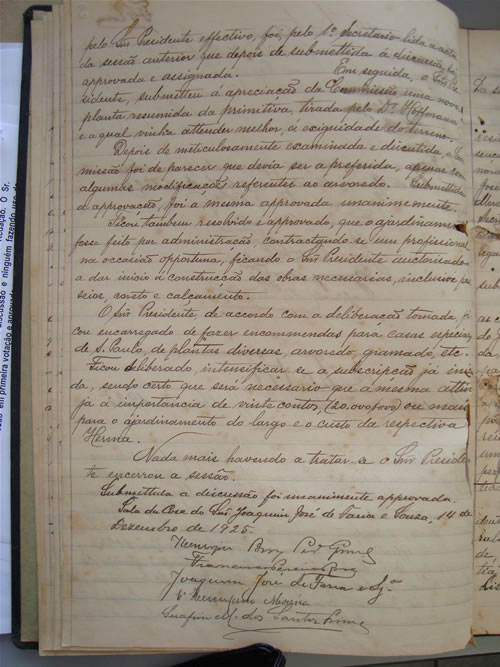 pelo Snr Presidente effectivo, foi, pelo 1º Secretario lida a acta
da sessão anterior que depois de submettida á discussão foi
approvada e assignada. Em seguida, o Snr Pre
sidente, submetteu á apreciação da Commissão uma nova
planta resumida da primitiva, tirada pelo Dr. Hoffmann
e a qual vinha attender melhor, a exiguidade do terreno.
Depois de meticulosamente examinada e discutida a Com
missão foi de parecer que devia ser a preferida, apenas com
algumas modificações referentes ao arvoredo. Submettida
á approvação, foi a mesma approvada unanimemente.
Ficou tambem resolvido e approvado, que o ajardinamento
fosse feito por administração, contractando-se um profissional
na occasião opportuna, ficando o Snr Presidente auctorisado
a dar inicio á construcção das obras necessarias, inclusive pas
seios, coreto e calçamento.
O Snr Presidente, de accordo com a deliberação tomada, fi
cou encarregado de fazer encommendas para casas especiaes
de S. Paulo, de plantas diversas, arvoredo, gramado, etc.
Ficou deliberado, intensificar-se a subscripção já inicia
da, sendo certo que será necessario que a mesma attin
ja a importancia de vinte contos, (20.000$000) ou mais
para o ajardinamento do largo e o custo da respectiva
Herma.
Nada mais havendo a tratar-se o Snr Presiden
te encerrou a sessão.
Submettida a discussão foi unanimente approvada.
Sala da Casa do Snr Joaquim José de Faria e Souza, 14 de
Dezembro de 1925.
Joaquim José de Faria e
Serafim M. dos Santos
discussão e ninguém fazendo uso da
em primeira votação e aprov